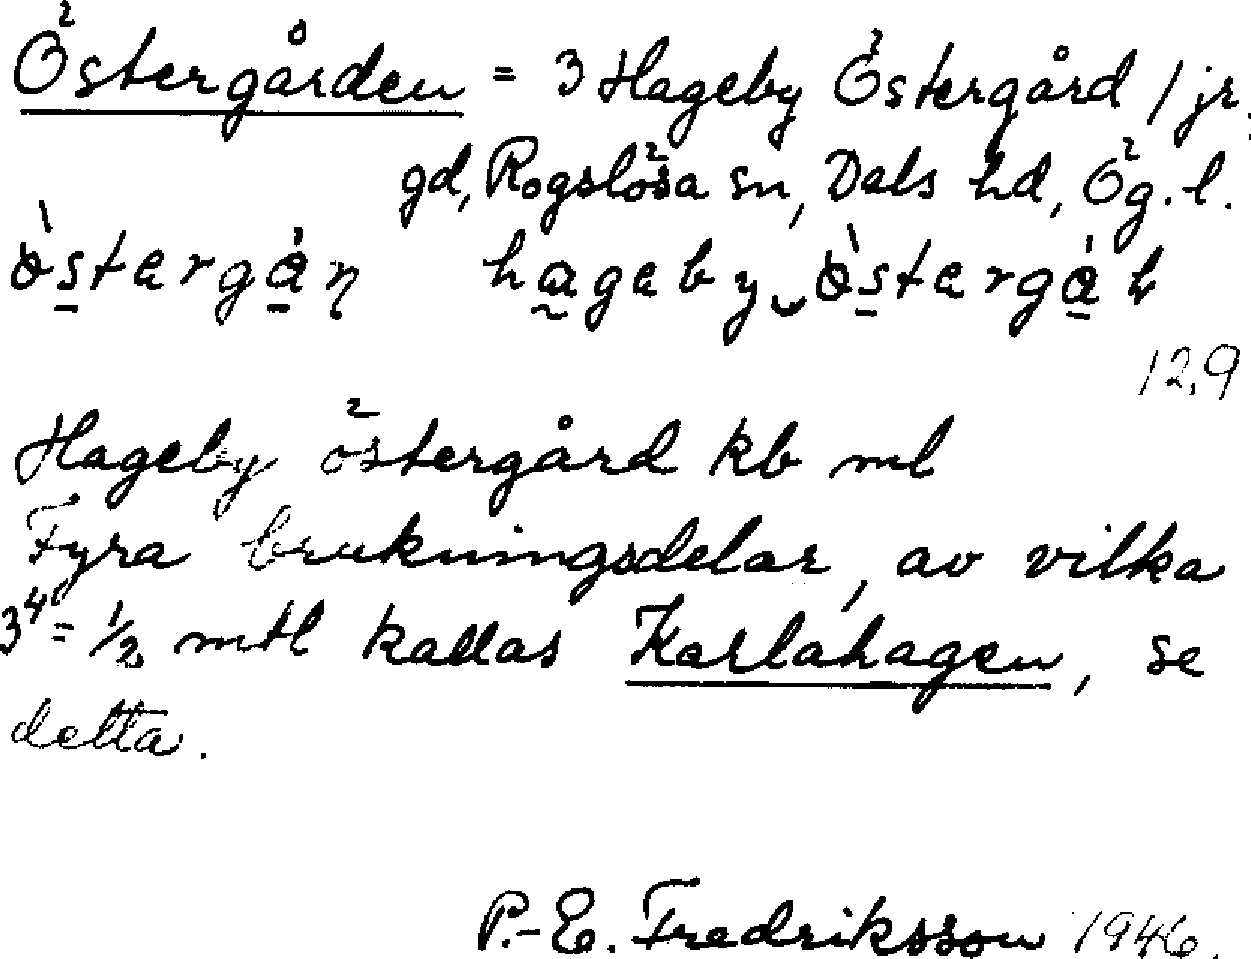 Östergården = 3 Hageby Östergård / jr.
gd, Rogslösa sn, Dals hd, Ög. l.
hageby
12,9
Hageby östergård kb ml
Fyra brukningsdelar, av vilka
3⁴ = 1/2 mtl kallas Karlahagen, se
detta.
P.-E. Fredriksson 1946.